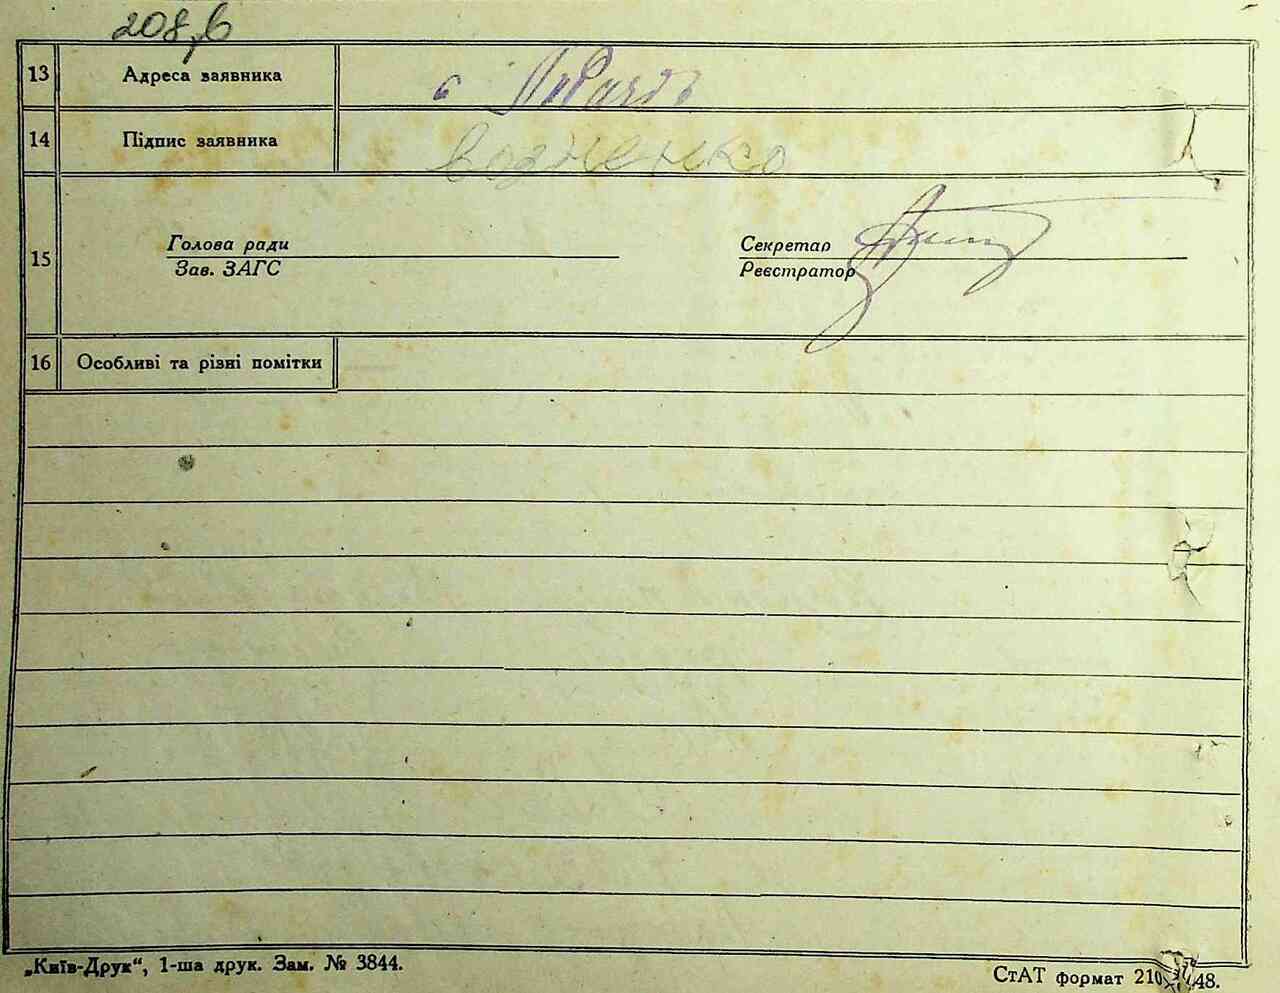 208
13 Адреса заявника с
14 Підпис заявника Возненко
15 Голова ради Секретар
Зав. ЗАГС Реєстратор
16 Особливі та різні помітки
„Київ-Друк“, 1-ша друк. Зам. № 3844.
СтАТ формат 210 148.